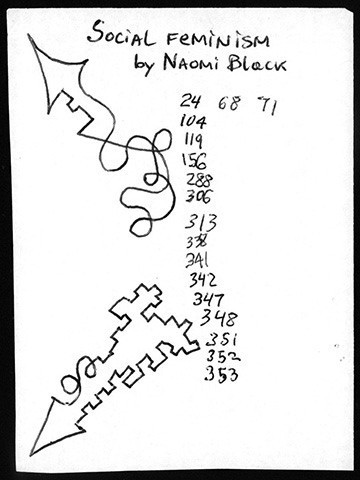 Social Feminism
by Naomi Black
24 68 71
104
119
156
288
306
313
338
341
342
347
348
351
352
353